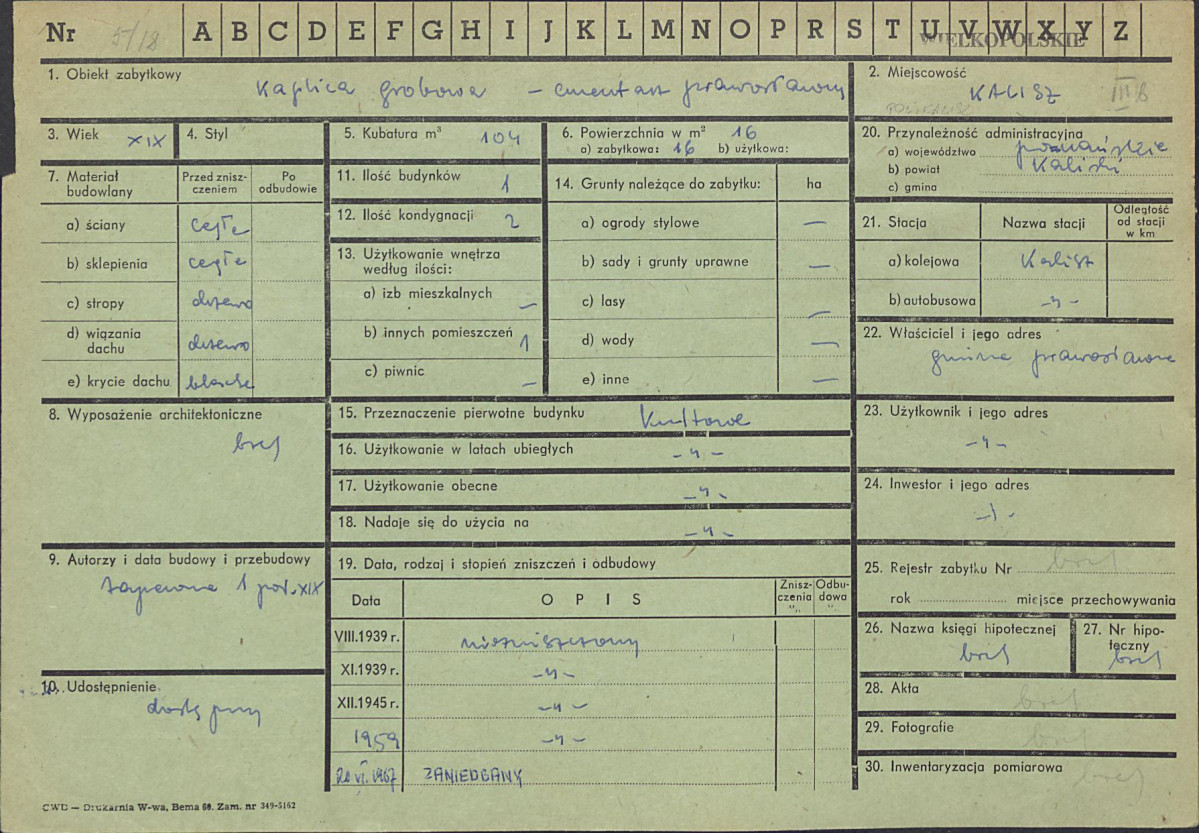 Nr 5/18 A B C D E F G H I J K L M N O P R S T U V W X Y Z
WIELKOPOLSKIE
1. Obiekt zabytkowy
Kaplica grobowa – cmentarz prawosławny
2. Miejscowość
KALISZ
III B
3. Wiek XIX
4. Styl
5. Kubatura m³ 104
6. Powierzchnia w m² 16
a) zabytkowa: 16 b) użytkowa:
7. Materiał budowlany
Przed zniszczeniem
Po odbudowie
a) ściany cegła
b) sklepienia cegła
c) stropy drzewo
d) wiązania dachu drzewo
e) krycie dachu blacha
8. Wyposażenie architektoniczne
brak
9. Autorzy i data budowy i przebudowy
1 poł. XIX
10. Udostępnienie
dostępny
11. Ilość budynków 1
12. Ilość kondygnacji 2
13. Użytkowanie wnętrza
według ilości:
a) izb mieszkalnych –
b) innych pomieszczeń 1
c) piwnic –
14. Grunty należące do zabytku: ha
a) ogrody stylowe –
b) sady i grunty uprawne –
c) lasy –
d) wody –
e) inne –
15. Przeznaczenie pierwotne budynku Kultowe
16. Użytkowanie w latach ubiegłych –„–
17. Użytkowanie obecne –„–
18. Nadaje się do użycia na –„–
19. Data, rodzaj i stopień zniszczeń i odbudowy
Data OPIS Zniszczenia "/„ Odbudowa "/„
VIII.1939 r. niezniszczony
XI.1939 r. –„–
XII.1945 r. –„–
1959 –„–
20 VI. 1967 ZANIEDBANY
20. Przynależność administracyjna
a) województwo poznańskie
b) powiat Kaliski
c) gmina
21. Stacja Nazwa stacji Odległość od stacji w km
a) kolejowa Kalisz
b) autobusowa –„–
22. Właściciel i jego adres
gmina prawosławna
23. Użytkownik i jego adres
–„–
24. Inwestor i jego adres
–„–
25. Rejestr zabytku Nr brak
rok miejsce przechowywania
26. Nazwa księgi hipotecznej
brak
27. Nr hipoteczny
brak
28. Akta brak
29. Fotografie brak
30. Inwentaryzacja pomiarowa brak
CWD — Drukarnia W-wa, Bema 60. Zam. nr 349-5162